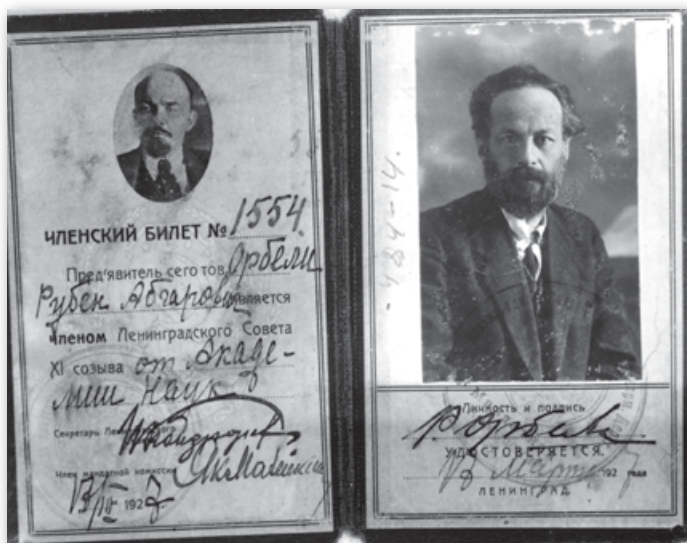 ЧЛЕНСКИЙ БИЛЕТ № 1554
Пред'явитель сего тов. Орбели
Рубен Абгарович является
членом Ленинградского Совета
XI созыва от Акаде-
мии Наук
Секретарь
Член мандатной комиссии
192
484-14.
Личность и подпись
Р. Орбели
УДОСТОВЕРЯЕТСЯ.
Марта 192 года
ЛЕНИНГРАД.